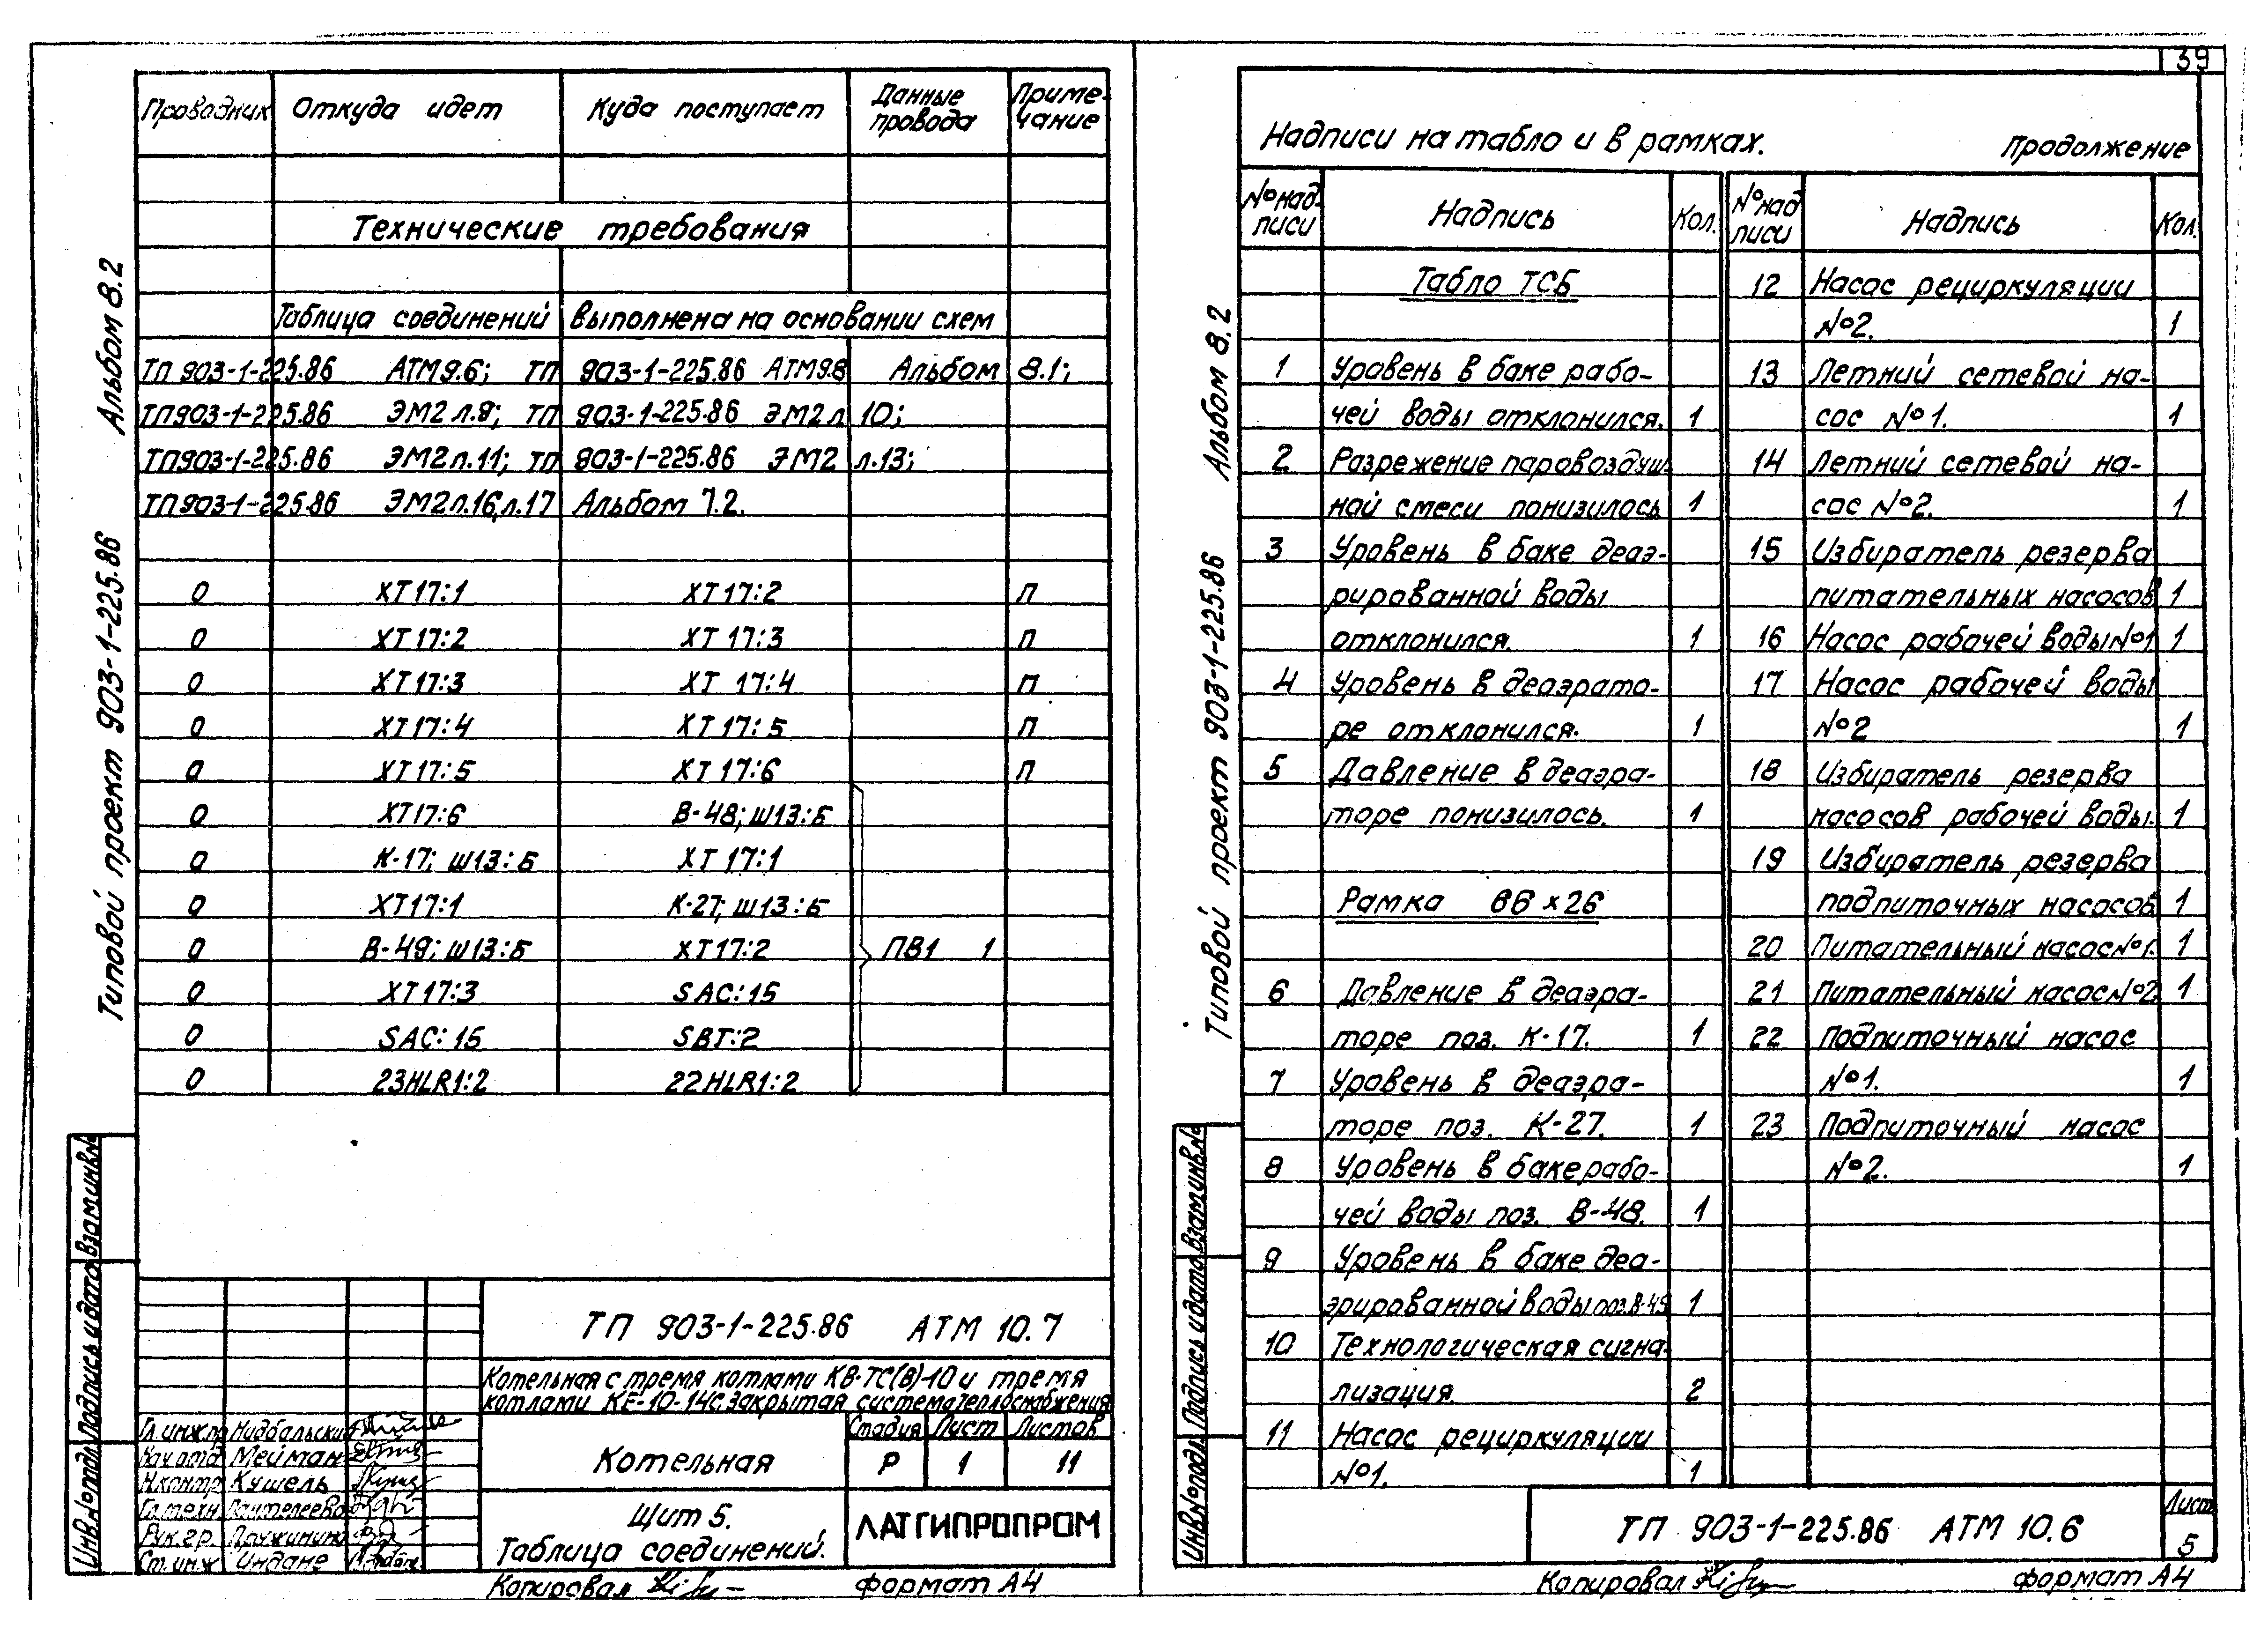 39
Альбом 8.2
Типовой проект 903-1-225.86
Проводник Откуда идет Куда поступает Данные провода Примечание
Технические требования
Таблица соединений выполнена на основании схем
ТП 903-1-225.86 АТМ9.6; ТП 903-1-225.86 АТМ9.8 Альбом 8.1;
ТП903-1-225.86 ЭМ2 л.9; ТП 903-1-225.86 ЭМ2 л 10;
ТП903-1-225.86 ЭМ2л.11; ТП 903-1-225.86 ЭМ2 л.13;
ТП903-1-225.86 ЭМ2л.16,л.17 Альбом 7.2.
0 ХТ17:1 ХТ17:2 П
0 ХТ17:2 ХТ 17:3 П
0 ХТ17:3 ХТ 17:4 П
0 ХТ17:4 ХТ17:5 П
0 ХТ17:5 ХТ17:6 П
0 ХТ17:6 В-48; Ш13:Б
0 К-17; Ш13:Б ХТ17:1
0 ХТ17:1 К-27; Ш13:Б
0 В-49; Ш13:Б ХТ17:2 ПВ1 1
0 ХТ17:3 SAC:15
0 SAC:15 SBT:2
0 23HLR1:2 22HLR1:2
Инв.№подл. Подпись и дата Взам.инв.№
ТП 903-1-225.86 АТМ 10.7
Котельная с тремя котлами КВ-ТС(В)-10 и тремя
котлами КЕ-10-14с. Закрытая система теплоснабжения
Гл.инж.пр Нидбальский
Нач.отд Мейман
Н.контр Кушель
Гл.техн. Пантелеева
Рук.гр. Дружинина
Ст.инж Индане
Котельная
Стадия Лист Листов
Р 1 11
Щит 5.
Таблица соединений.
ЛАТГИПРОПРОМ
Копировал
Формат А4
Альбом 8.2
Типовой проект 903-1-225.86
Надписи на табло и в рамках. Продолжение
№ надписи Надпись Кол. № надписи Надпись Кол.
Табло ТСБ
1 Уровень в баке рабо-
чей воды отклонился. 1
2 Разрежение паровоздуш-
ной смеси понизилось 1
3 Уровень в баке деаэ-
рированной воды
отклонился. 1
4 Уровень в деаэрато-
ре отклонился. 1
5 Давление в деаэра-
торе понизилось. 1
Рамка 66 х 26
6 Давление в деаэра-
торе поз. К-17. 1
7 Уровень в деаэра-
торе поз. К-27. 1
8 Уровень в баке рабо-
чей воды поз. В-48. 1
9 Уровень в баке деа-
эрированной воды поз.В-49 1
10 Технологическая сигна-
лизация. 2
11 Насос рециркуляции
№1. 1
12 Насос рециркуляции
№2. 1
13 Летний сетевой на-
сос №1. 1
14 Летний сетевой на-
сос №2. 1
15 Избиратель резерва
питательных насосов 1
16 Насос рабочей воды №1 1
17 Насос рабочей воды
№2 1
18 Избиратель резерва
насосов рабочей воды. 1
19 Избиратель резерва
подпиточных насосов 1
20 Питательный насос №1. 1
21 Питательный насос №2 1
22 Подпиточный насос
№1. 1
23 Подпиточный насос
№2. 1
Инв.№подл. Подпись и дата Взам.инв.№
ТП 903-1-225.86 АТМ 10.6
Лист
5
Копировал
Формат А4